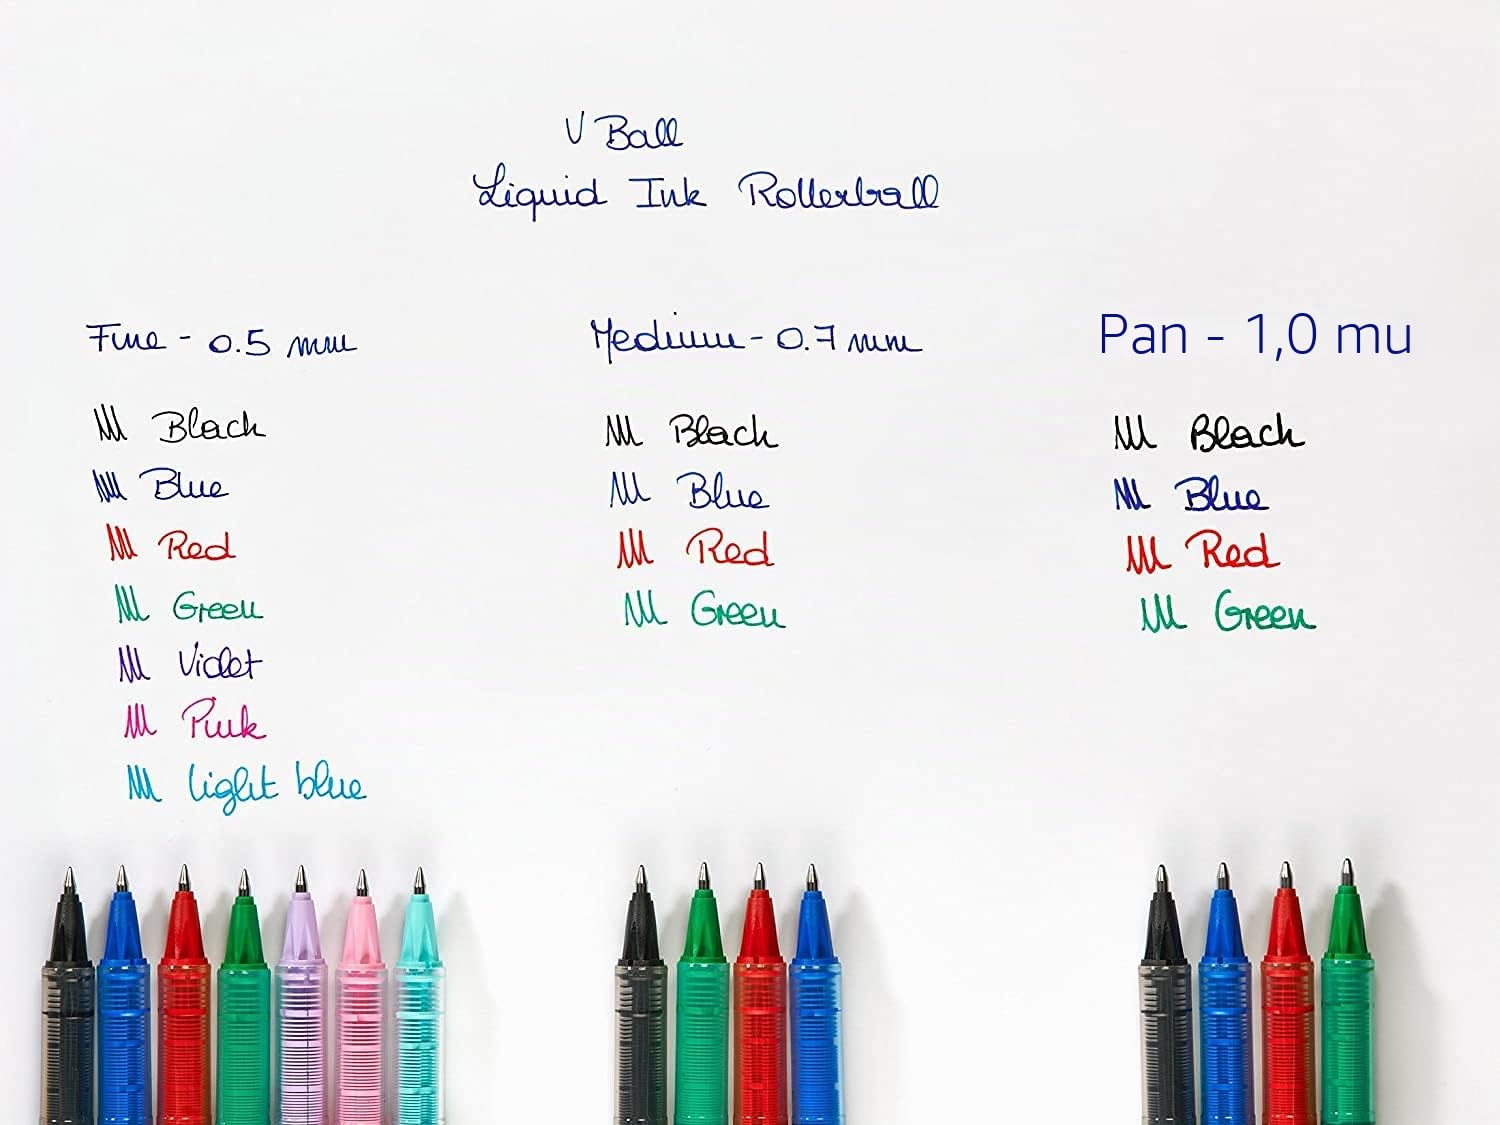 V Ball
Liquid Ink Rollerball
Fine - 0.5 mm
Black
Blue
Red
Green
Violet
Pink
light blue
Medium - 0.7 mm
Black
Blue
Red
Green
Pan - 1,0 mu
Black
Blue
Red
Green